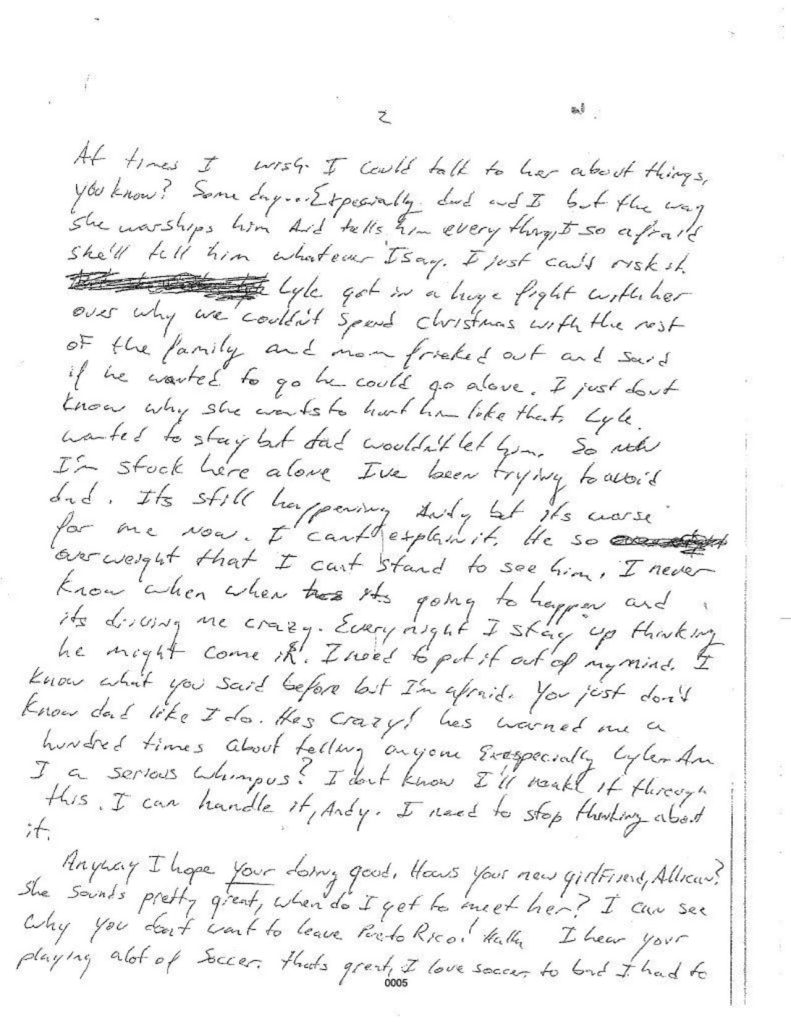 2
At times I wish I could talk to her about things,
you know? Some day... Expecially dad and I but the way
she warships him and tells him everything, I so afraid
she'll tell him whatever I say. I just can't risk it.
Lyle got in a huge fight with her
over why we couldn't spend Christmas with the rest
of the family and mom fricked out and said
if he wanted to go he could go alone. I just dont
know why she wants to hurt him like that. Lyle
wanted to stay but dad wouldn't let him. So now
I'm stuck here alone I've been trying to avoid
dad. Its still happening Andy but its worse
for me now. I can't explain it. He so
overweight that I cant stand to see him. I never
know when when its going to happen and
its driving me crazy. Every night I stay up thinking
he might come in. I need to put it out of my mind. I
know what you said before but I'm afraid. You just don't
know dad like I do. Hes crazy! hes warned me a
hundred times about telling anyone especially Lyle. Am
I a serious whimpus? I dont know I'll make it through
this. I can handle it, Andy. I need to stop thinking about
it.
Anyway I hope your doing good. Hows your new girlfriend,
She sounds pretty great, when do I get to meet her? I can see
why you don't want to leave Pueto Rico! I hear your
playing alot of soccer. thats great, I love soccer. to bad I had to
0005